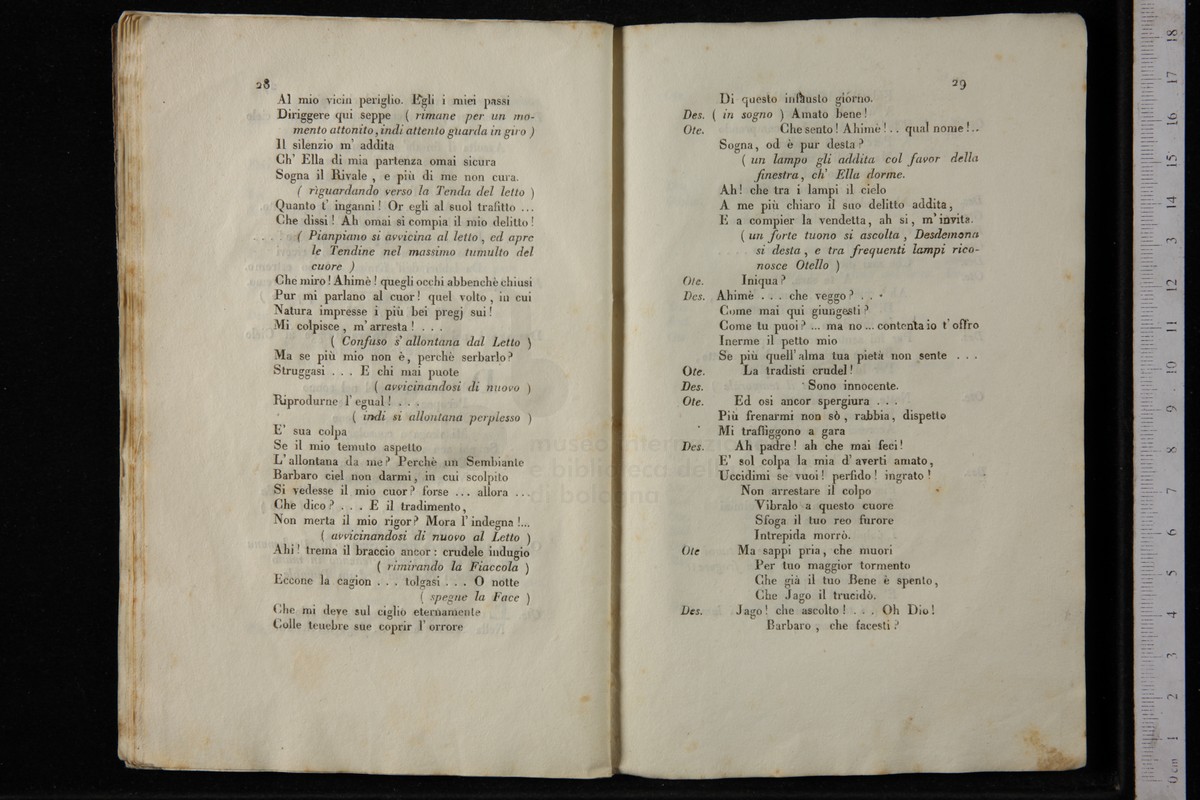 28
Al mio vicin periglio. Egli i miei passi
Diriggere qui seppe ( rimane per un mo-
mento attonito, indi attento guarda in giro )
Il silenzio m' addita
Ch' Ella di mia partenza omai sicura
Sogna il Rivale , e più di me non cura.
( riguardando verso la Tenda del letto )
Quanto t' inganni! Or egli al suol trafitto ...
Che dissi! Ah omai si compia il mio delitto!
( Pianpiano si avvicina al letto , ed apre
le Tendine nel massimo tumulto del
cuore )
Che miro! Ahimè! quegli occhi abbenchè chiusi
Pur mi parlano al cuor! quel volto , in cui
Natura impresse i più bei pregj sui!
Mi colpisce , m' arresta! . . .
( Confuso s' allontana dal Letto )
Ma se più mio non è, perchè serbarlo?
Struggasi . . . E chi mai puote
( avvicinandosi di nuovo )
Riprodurne l' egual! . . .
( indi si allontana perplesso )
E' sua colpa
Se il mio temuto aspetto
L' allontana da me? Perchè un Sembiante
Barbaro ciel non darmi, in cui scolpito
Si vedesse il mio cuor? forse ... allora ...
Che dico? . . . E il tradimento,
Non merta il mio rigor? Mora l' indegna!...
( avvicinandosi di nuovo al Letto )
Ahi! trema il braccio ancor: crudele indugio
( rimirando la Fiaccola )
Eccone la cagion . . . tolgasi . . . O notte
( spegne la Face )
Che mi deve sul ciglio eternamente
Colle tenebre sue coprir l' orrore
29
Di questo infausto giorno.
Des. ( in sogno ) Amato bene!
Ote. Che sento! Ahimè!.. qual nome!..
Sogna, od è pur desta?
( un lampo gli addita col favor della
finestra, ch' Ella dorme.
Ah! che tra i lampi il cielo
A me più chiaro il suo delitto addita,
E a compier la vendetta, ah si, m' invita.
( un forte tuono si ascolta , Desdemona
si desta, e tra frequenti lampi rico-
nosce Otello )
Ote. Iniqua?
Des. Ahimè . . . che veggo? . . .
Come mai qui giungesti?
Come tu puoi? ... ma no ... contenta io t' offro
Inerme il petto mio
Se più quell' alma tua pietà non sente . . .
Ote. La tradisti crudel!
Des. Sono innocente.
Ote. Ed osi ancor spergiura . . .
Più frenarmi non sò , rabbia, dispetto
Mi trafliggono a gara
Des. Ah padre! ah che mai feci!
E' sol colpa la mia d' averti amato,
Uccidimi se vuoi! perfido! ingrato!
Non arrestare il colpo
Vibralo a questo cuore
Sfoga il tuo reo furore
Intrepida morrò.
Ote Ma sappi pria, che muori
Per tuo maggior tormento
Che già il tuo Bene è spento,
Che Jago il trucidò.
Des. Jago! che ascolto! . . . Oh Dio!
Barbaro , che facesti?
museo internazionale
e biblioteca della
di bologna
0 cm 1 2 3 4 5 6 7 8 9 10 11 12 13 14 15 16 17 18